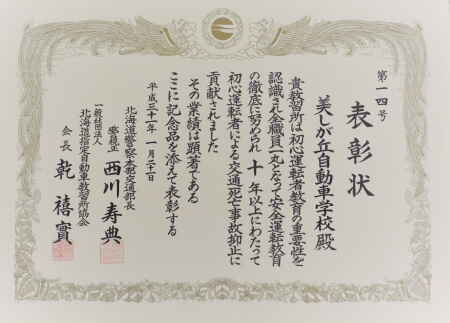 第一四号
表彰状
美しが丘自動車学校殿
貴教習所は初心運転者教育の重要性を
認識され全職員一丸となって安全運転教育
の徹底に努められ十年以上にわたって
初心運転者による交通死亡事故抑止に
貢献されました
その業績は顕著である
ここに記念品を添えて表彰する
平成三十一年一月二十一日
北海道警察本部交通部長
警視正 西川寿典
一般社団法人
北海道指定自動車教習所協会
会長 乾禧實